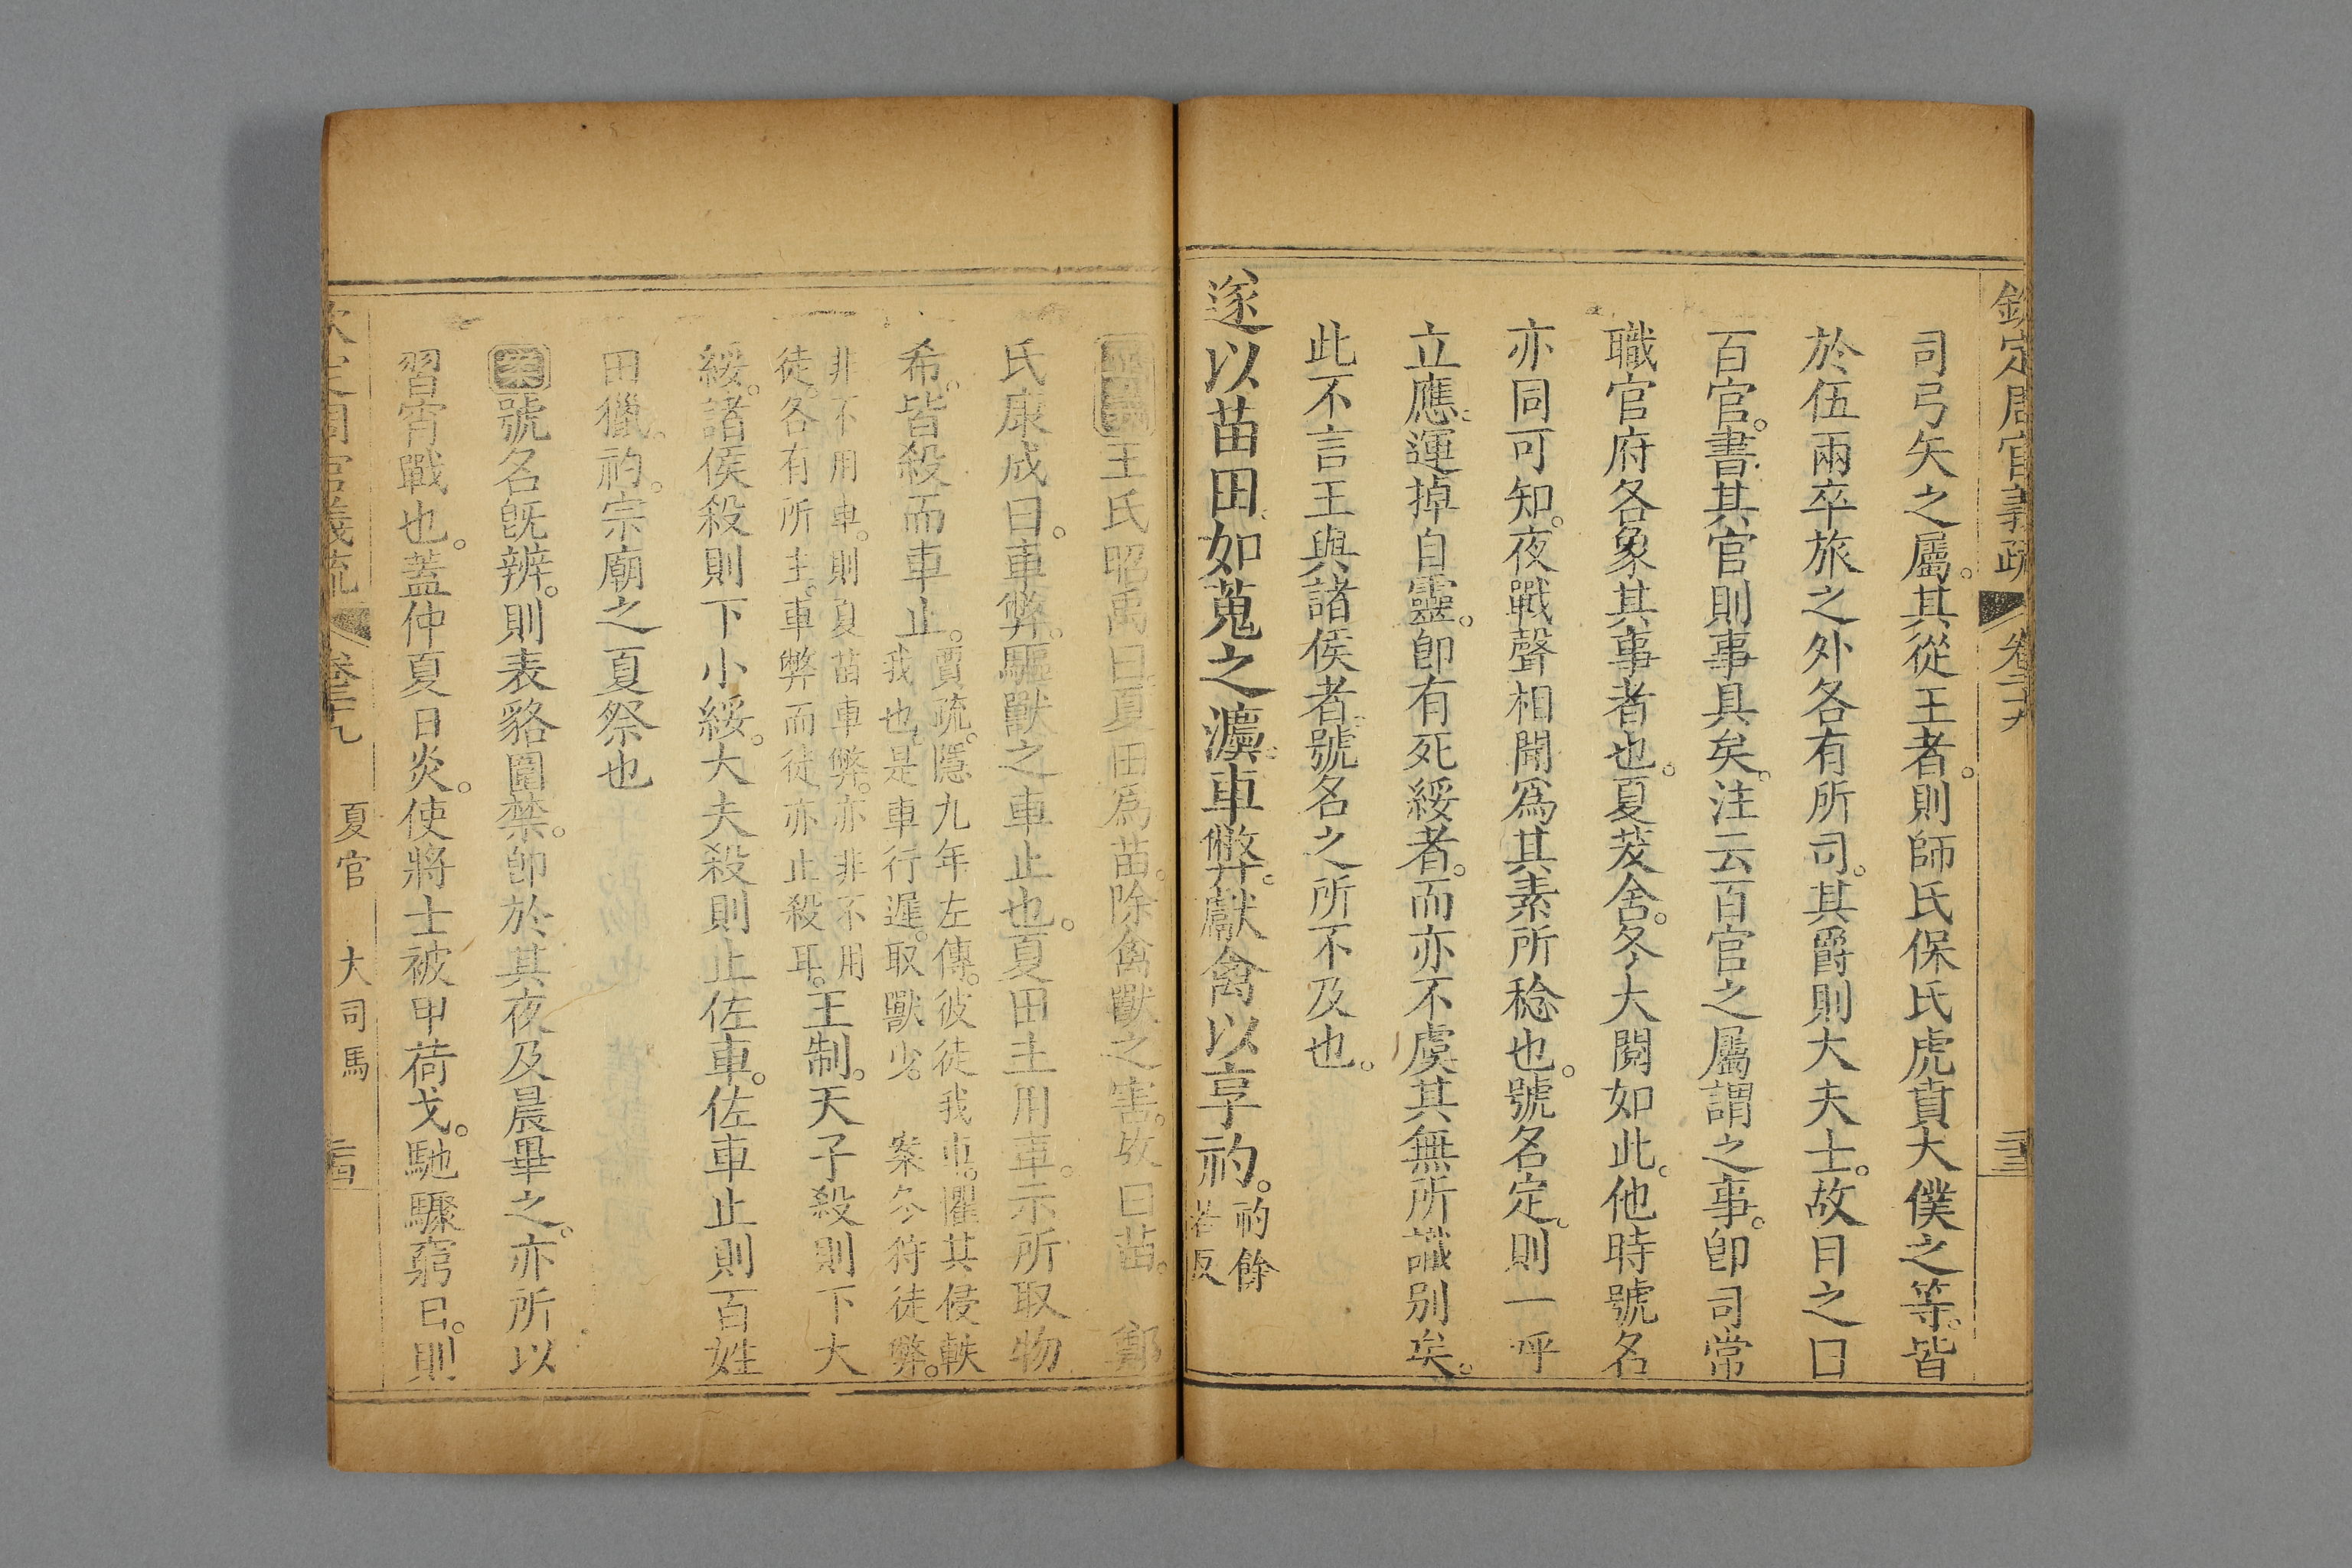 欽定周官義疏 卷二十九 三三
司弓矢之屬。其從王者。則師氏保氏虎賁大僕之等。皆
於伍兩卒旅之外各有所司。其爵則大夫士。故目之曰
百官。書其官則事具矣。注云百官之屬謂之事。卽司常
職官府各象其事者也。夏茇舍。冬大閱如此。他時號名
亦同可知。夜戰聲相聞爲其素所稔也。號名定。則一呼
立應。運掉自靈。卽有死綏者。而亦不虞其無所識別矣。
此不言王與諸侯者。號名之所不及也。
遂以苗田。如蒐之灋。車弊。獻禽以享礿。礿餘
若反
王氏昭禹曰。夏田爲苗。除禽獸之害。故曰苗。 鄭
氏康成曰。車弊。驅獸之車止也。夏田主用車。示所取物
希。皆殺而車止。賈疏。隱九年左傳。彼徒我車。懼其侵軼
我也。是車行遲。取獸少。 案今狩徒弊。
非不用車。則夏苗車弊。亦非不用
徒。各有所主。車弊而徒亦止殺耳。王制。天子殺則下大
綏。諸侯殺則下小綏。大夫殺則止佐車。佐車止則百姓
田獵。礿。宗廟之夏祭也
案號名旣辨。則表貉圍禁。卽於其夜及晨畢之。亦所以
習宵戰也。蓋仲夏日炎。使將士被甲荷戈。馳驟窮日。則
欽定周官義疏 卷二十九 夏官 大司馬 三四